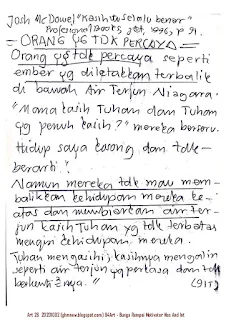 Josh McDowel, "Kasih itu selalu benar"
Profesional Books, Jkt, 1995, p 91.
= ORANG YG TDK PERCAYA =
Orang yg tdk percaya seperti
ember yg diletakkan terbalik
di bawah Air Terjun Niagara.
"Mana kasih Tuhan dan Tuhan
yg penuh kasih?" mereka berseru.
Hidup saya kosong dan tdk
berarti!"
Namun mereka tdk mau mem-
balikkan kehidupan mereka ke
atas dan membiarkan air ter-
jun kasih Tuhan yg tdk terbatas
mengisi kehidupan mereka.
Tuhan mengasihi; kasihnya mengalir
seperti air terjun yg perkasa dan tdk
berhenti2nya."
(9IT)